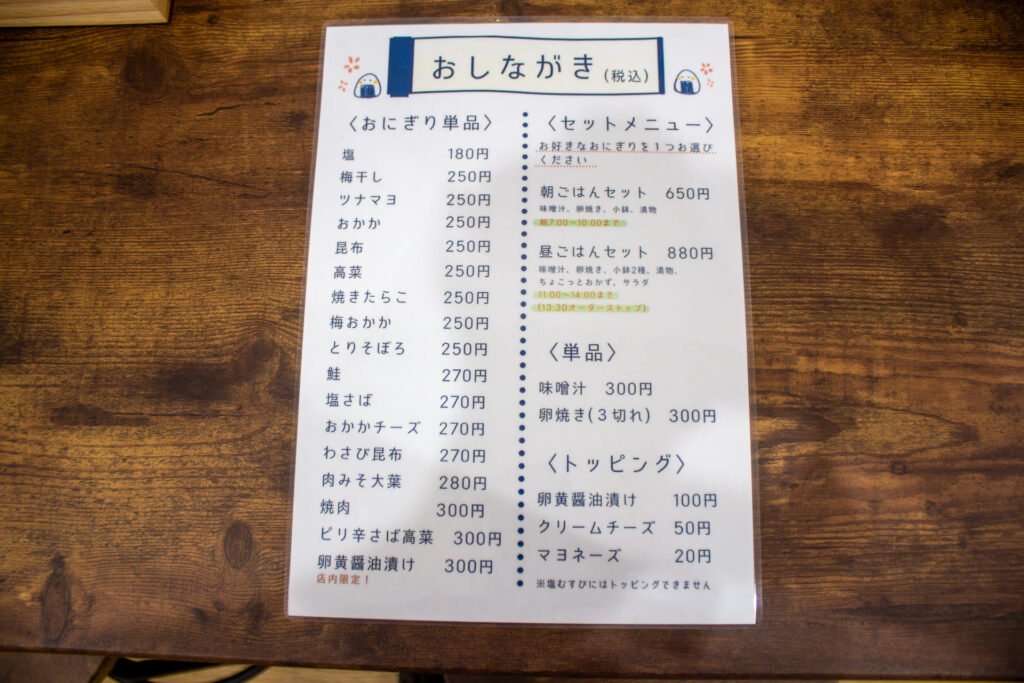 おしながき(税込)
〈おにぎり単品〉
塩 180円
梅干し 250円
ツナマヨ 250円
おかか 250円
昆布 250円
高菜 250円
焼きたらこ 250円
梅おかか 250円
とりそぼろ 250円
鮭 270円
塩さば 270円
おかかチーズ 270円
わさび昆布 270円
肉みそ大葉 280円
焼肉 300円
ピリ辛さば高菜 300円
卵黄醤油漬け 300円
店内限定！
〈セットメニュー〉
お好きなおにぎりを１つお選び
ください
朝ごはんセット 650円
味噌汁、卵焼き、小鉢、漬物
朝7:00〜10:00まで
昼ごはんセット 880円
味噌汁、卵焼き、小鉢2種、漬物、
ちょこっとおかず、サラダ
11:00〜14:00まで
(13:30オーダーストップ)
〈単品〉
味噌汁 300円
卵焼き(３切れ) 300円
〈トッピング〉
卵黄醤油漬け 100円
クリームチーズ 50円
マヨネーズ 20円
※塩むすびにはトッピングできません